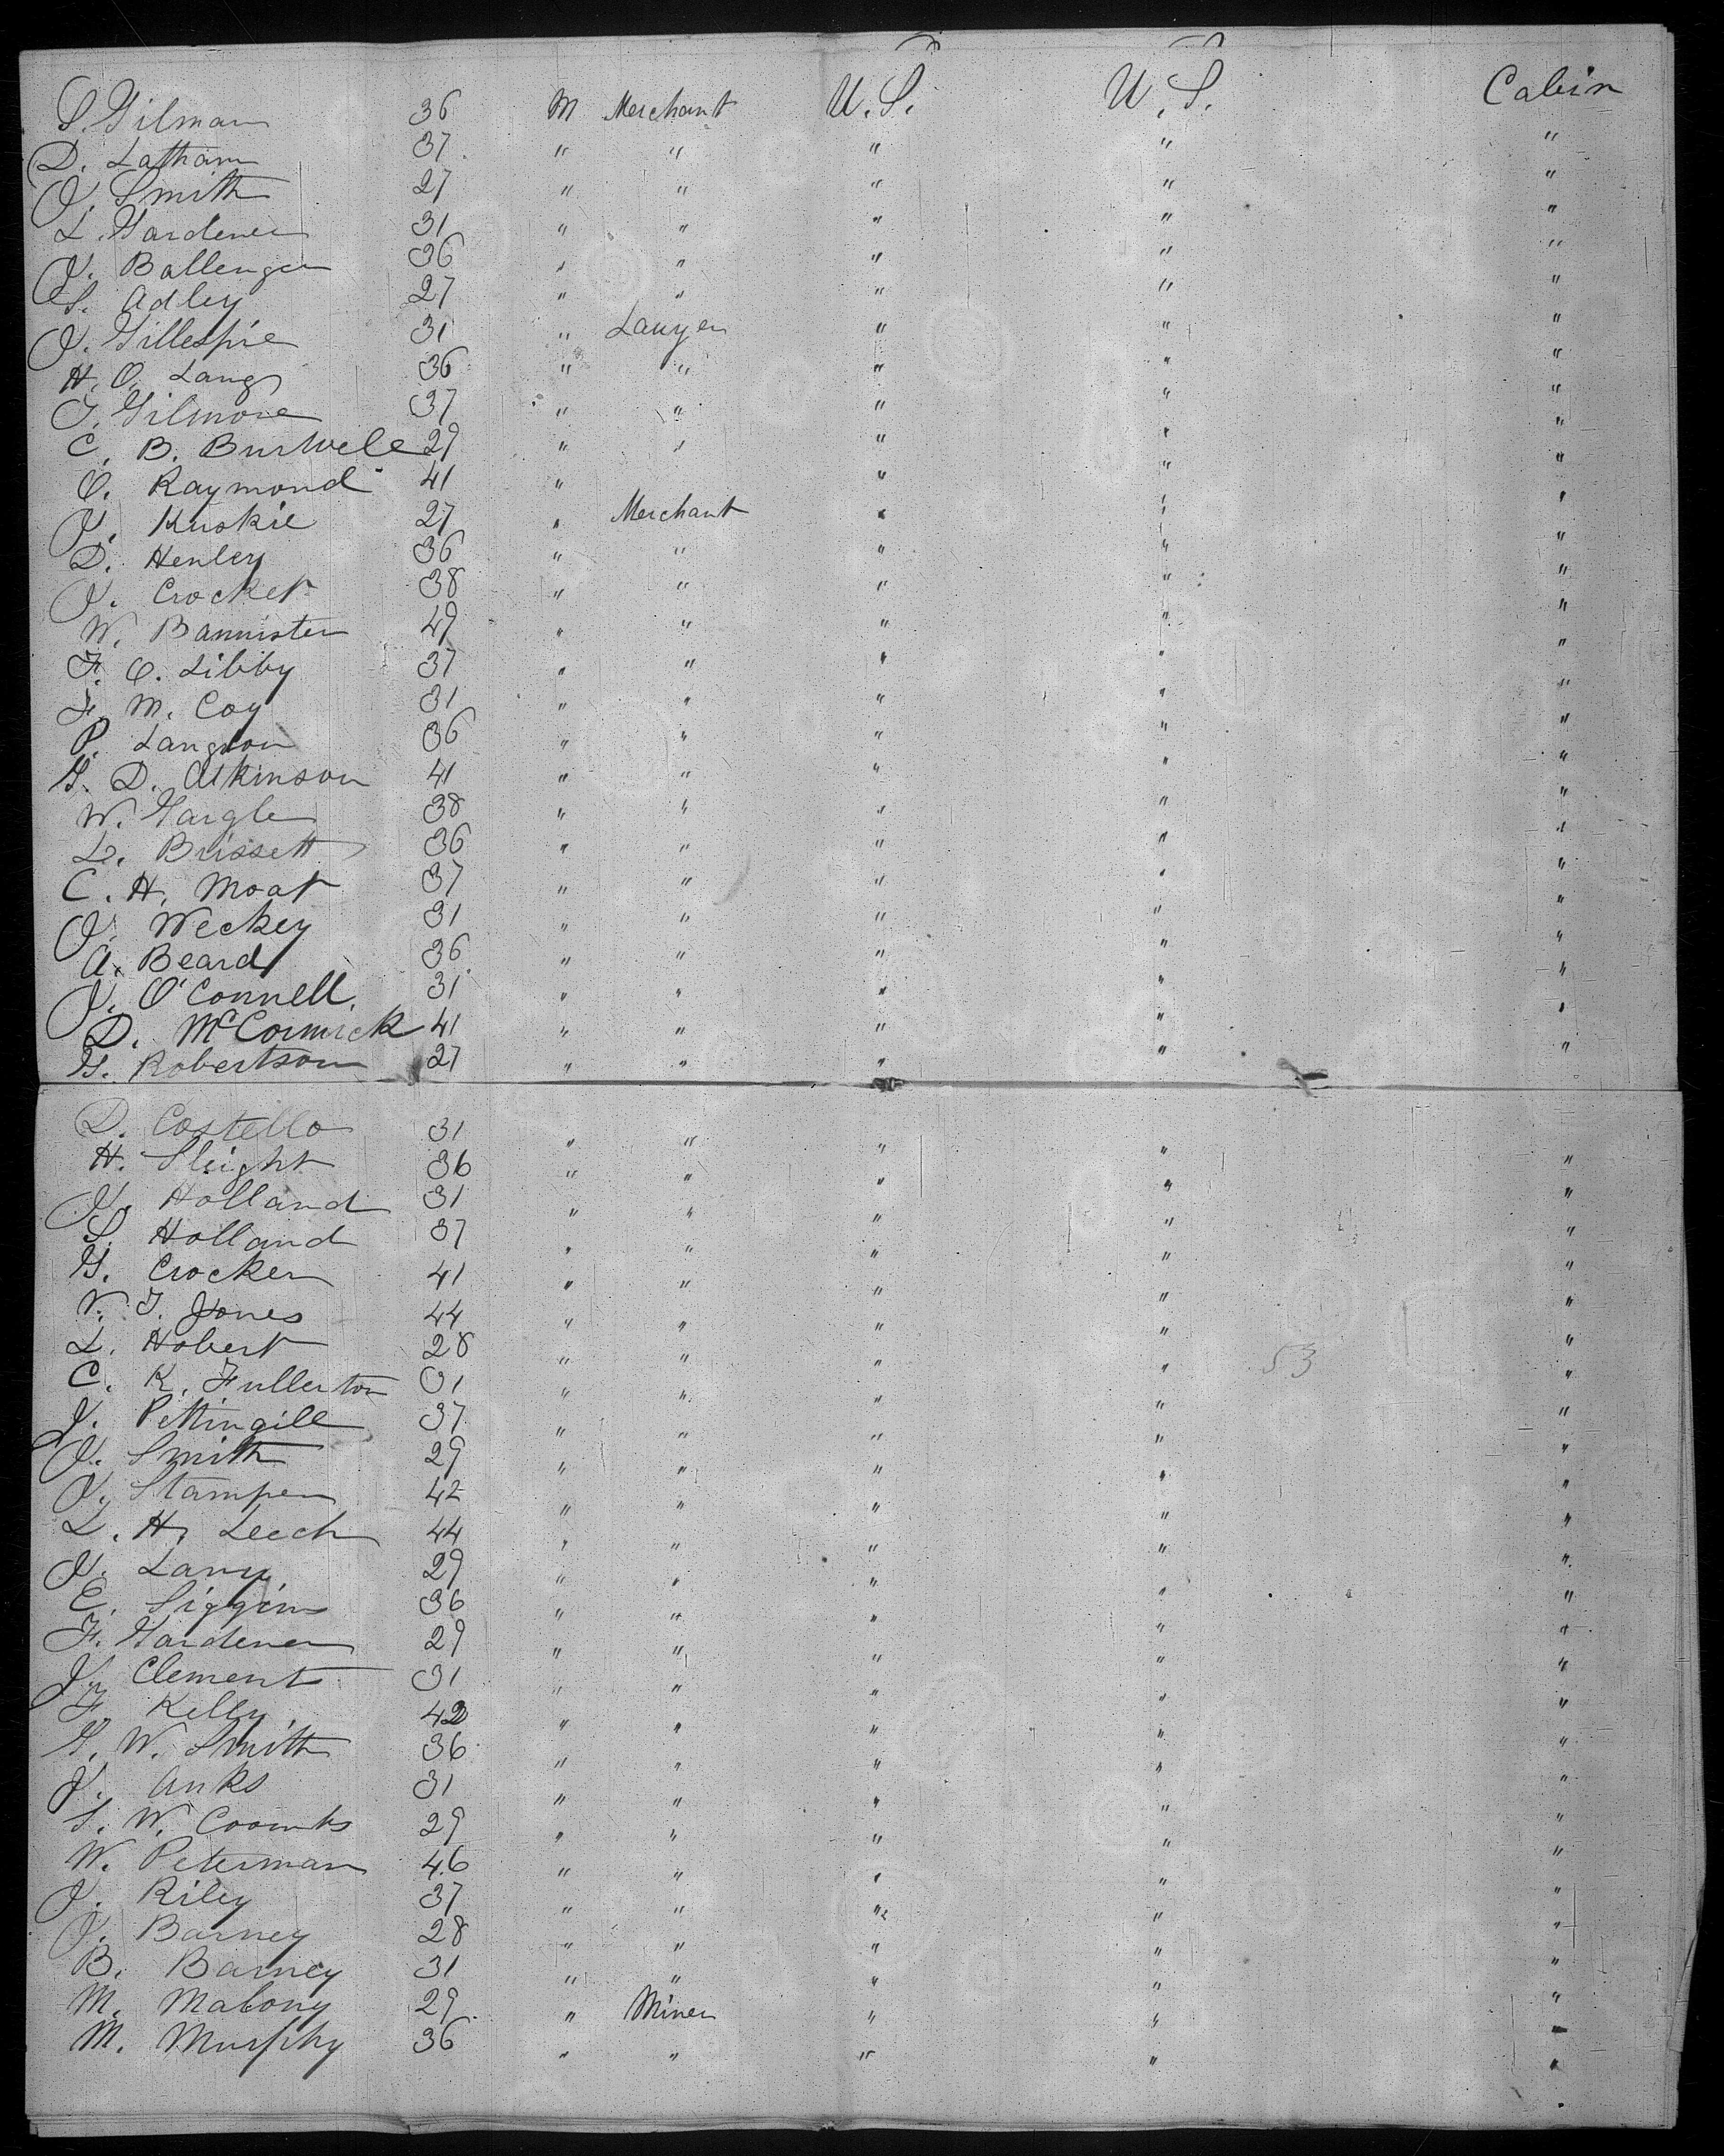 S. Gilman 36 M Merchant U.S. U.S. Cabin
D. Latham 37 " " " " "
J. Smith 27 " " " " "
L. Gardener 31 " " " " "
J. Ballenger 36 " " " " "
S. Adley 27 " " " " "
J. Gillespie 31 " Lawyer " " "
H. O. Lang 36 " " " " "
T. Gilmore 37 " " " " "
C. B. Burwell 29 " " " " "
O. Raymond 41 " " " "
J. Kuskie 27 " Merchant " " "
D. Henley 36 " " " " "
J. Crocket 38 " " " " "
W. Bannister 49 " " " " "
F. O. Libby 37 " " " " "
F. M. Coy 31 " " " " "
P. Langdon 36 " " " " "
G. D. Atkinson 41 " " " " "
W. Gargler 38 " " " " "
L. Brissett 36 " " " " "
C. H. Moat 37 " " " " "
J. Weckey 31 " " " " "
A. Beard 36 " " " " "
J. O'Connell 31 " " " " "
D. McCormick 41 " " " " "
G. Robertson 27 " " " " "
D. Costello 31 " " " " "
H. Sleight 36 " " " " "
J. Holland 31 " " " " "
S. Holland 37 " " " " "
G. Crocker 41 " " " " "
V. T. Jones 44 " " " " "
L. Hobert 28 " " " " "
C. K. Fullerton 31 " " " 53 "
J. Pettingill 37 " " " " "
J. Smith 29 " " " " "
J. Stamper 42 " " " " "
L. H. Leech 44 " " " " "
J. Lavy 29 " " " " "
E. Siggins 36 " " " " "
F. Gardener 29 " " " " "
J. Clement 31 " " " " "
F. Kelly 42 " " " " "
G. W. Smith 36 " " " " "
J. Anks 31 " " " " "
S. W. Coombs 29 " " " " "
W. Peterman 46 " " " " "
J. Riley 37 " " " " "
J. Barney 28 " " " " "
B. Barney 31 " " " " "
M. Malony 29 " Miner " " "
M. Murphy 36 " " " " "